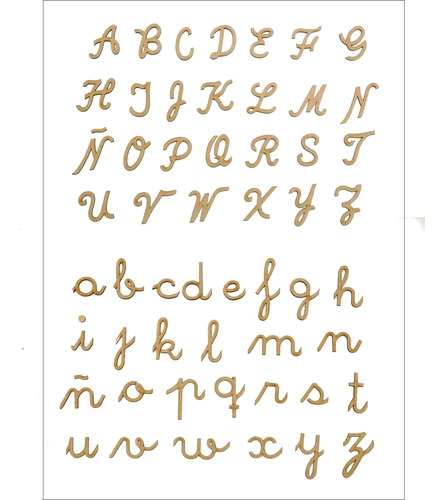 A B C D E F G
H I J K L M N
Ñ O P Q R S T
U V W X Y Z
a b c d e f g h
i j k l m n
ñ o p q r s t
u v w x y z